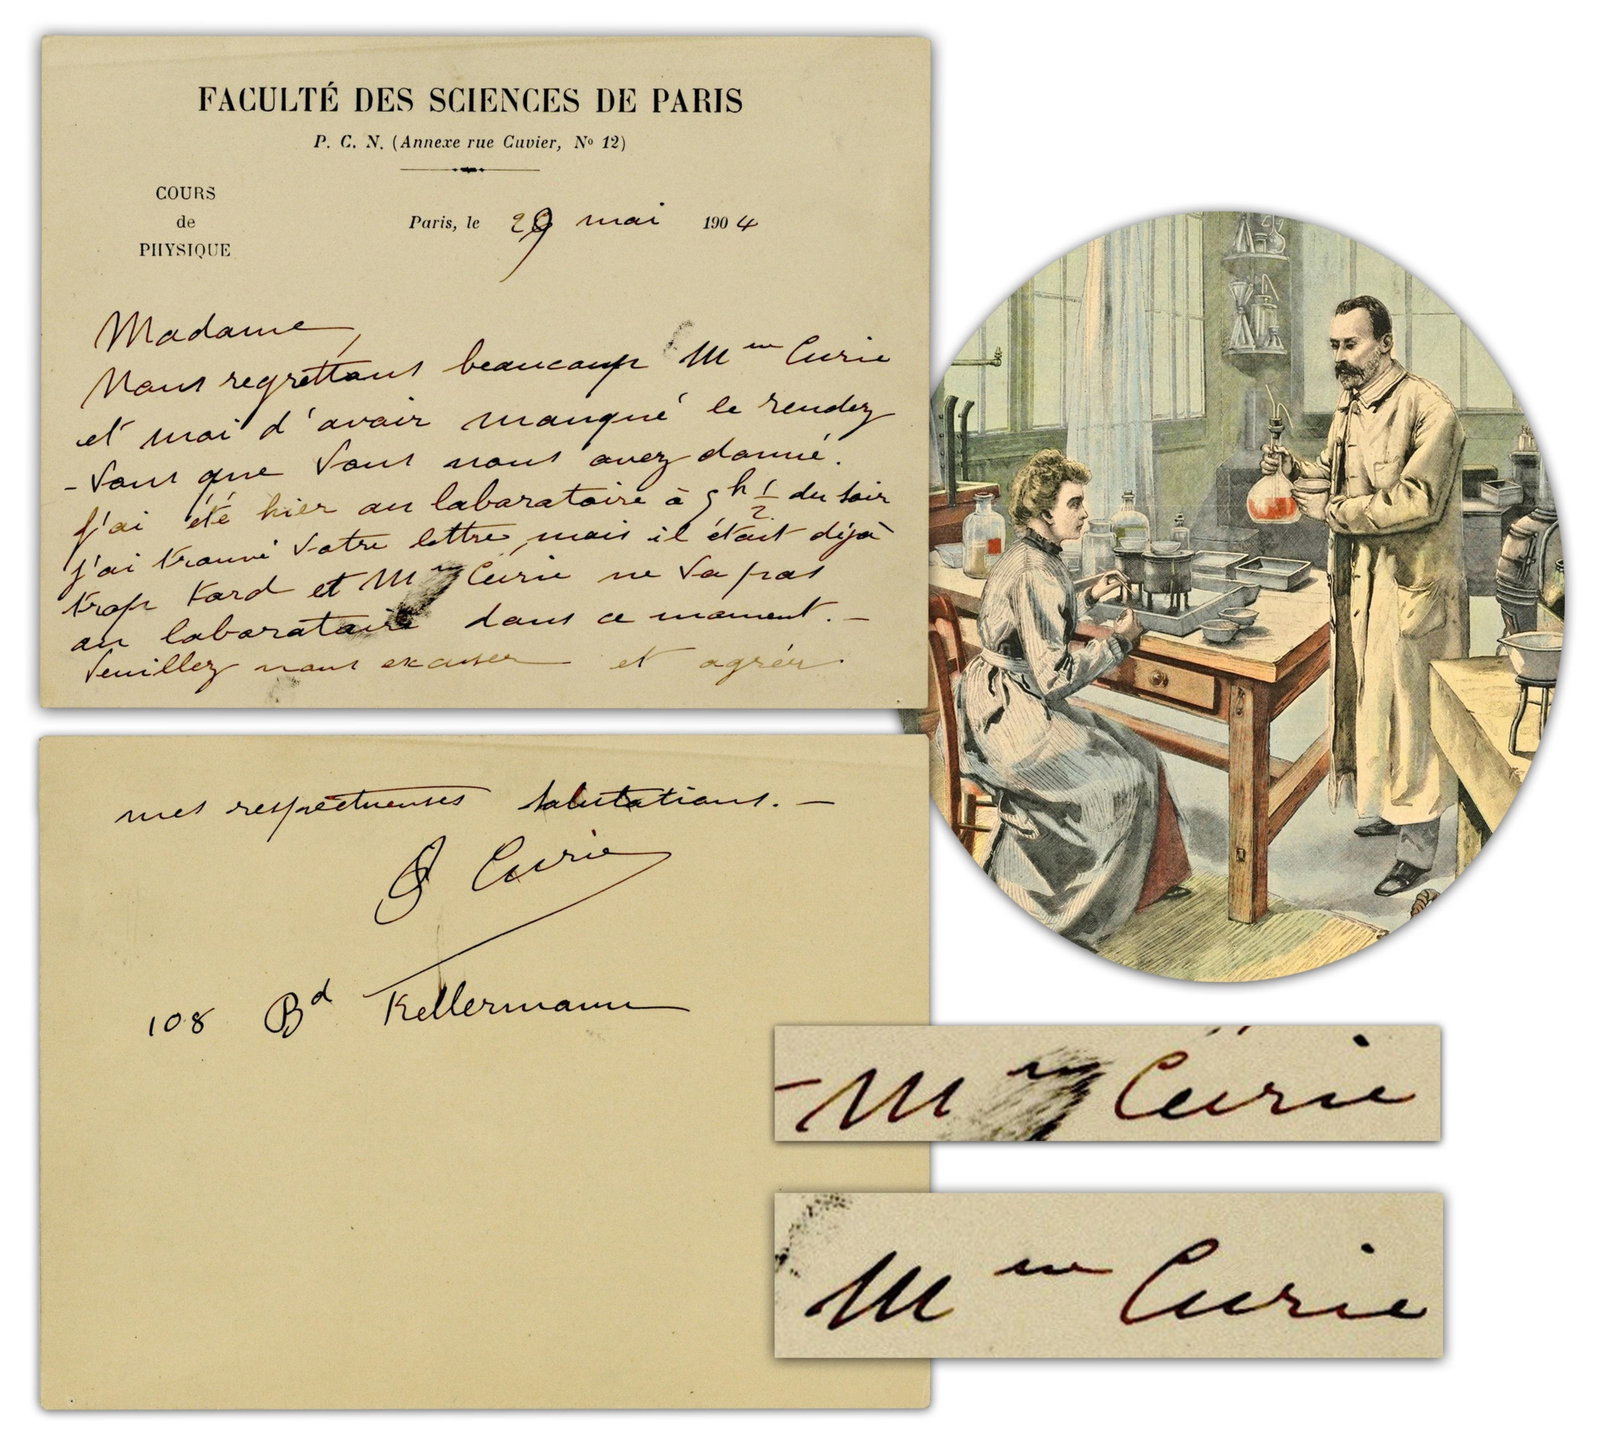 FACULTÉ DES SCIENCES DE PARIS
P. C. N. (Annexe rue Cuvier, Nº 12)
COURS
de
PHYSIQUE
Paris, le 29 mai 1904
Madame,
Nous regrettons beaucoup Mme Curie
et moi d'avoir manqué le rendez
-vous que vous nous avez donné.
J'ai été hier au laboratoire à 5h 1/2 du soir
j'ai trouvé votre lettre mais il était déjà
trop tard et Mme Curie ne va pas
au laboratoire dans ce moment. –
Veuillez nous excuser et agréer
mes respectueuses salutations. –
P Curie
108 Bd Kellermann
Mme Curie
Mme Curie